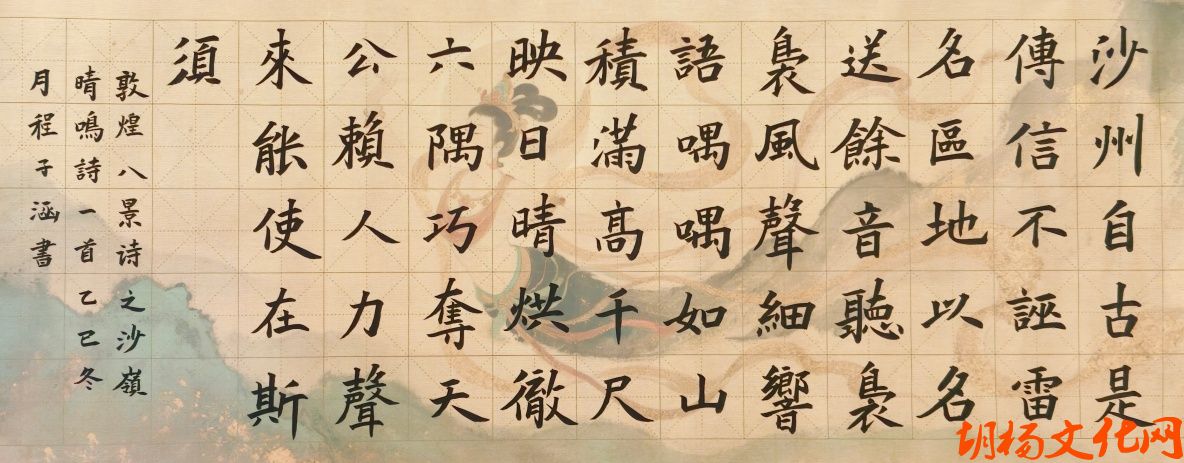 沙州自古是
傳信不誣雷
名區地以名
送餘音聽裊
裊風聲細響
語喁喁如山
積滿高千尺
映日晴烘徹
六隅巧奪天
公賴人力聲
來能使在斯
須
敦煌八景诗之沙嶺
晴鳴詩一首乙巳冬
月程子涵書
胡杨文化网